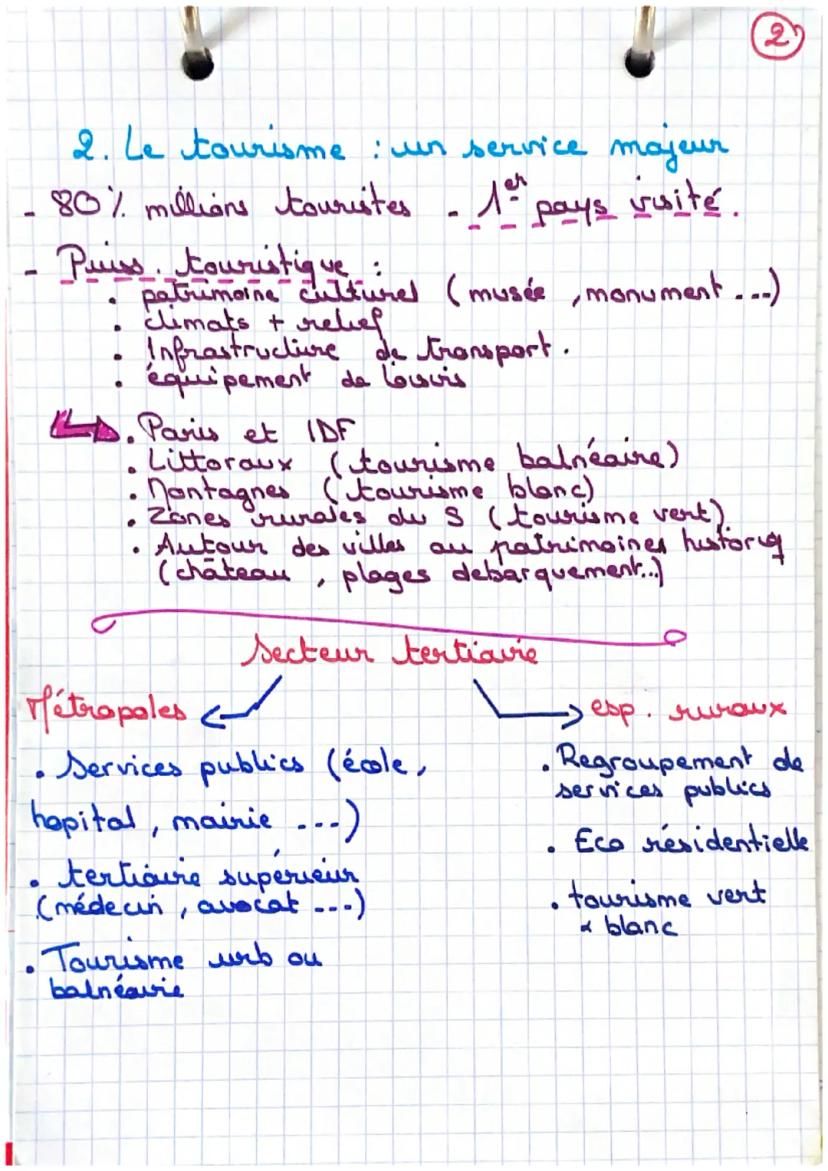 2
2. Le tourisme : un service majeur
- 80% millions touristes - 1er pays visité.
- Puiss. touristique :
• patrimoine culturel (musée, monument ...)
• climats + relief
• Infrastructure de transport.
• équipement de loisirs
• Paris et IDF
• Littoraux (tourisme balnéaire)
• Montagnes (tourisme blanc)
• Zones rurales du S (tourisme vert)
• Autour des villes au patrimoines historiq
(château, plages debarquement...)
Secteur tertiaire
Métropoles
esp. ruraux
• Services publics (école,
hopital, mairie ...)
• tertiaire supérieur
(médecin, avocat ...)
• Tourisme urb ou
balnéaire
• Regroupement de
services publics
• Eco résidentielle
• tourisme vert
& blanc